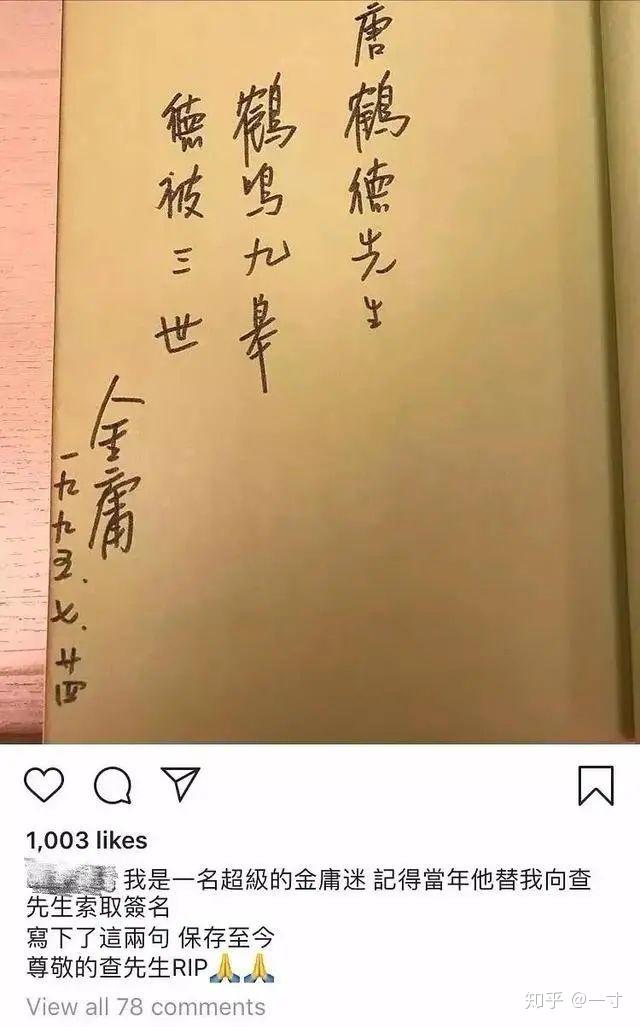 唐鶴德先生
鶴鳴九皋
德被三世
金庸
一九九五.七.廿四
1,003 likes
我是一名超級的金庸迷 記得當年他替我向查
先生索取簽名
寫下了這兩句 保存至今
尊敬的查先生RIP🙏🙏
View all 78 comments
知乎 @一寸